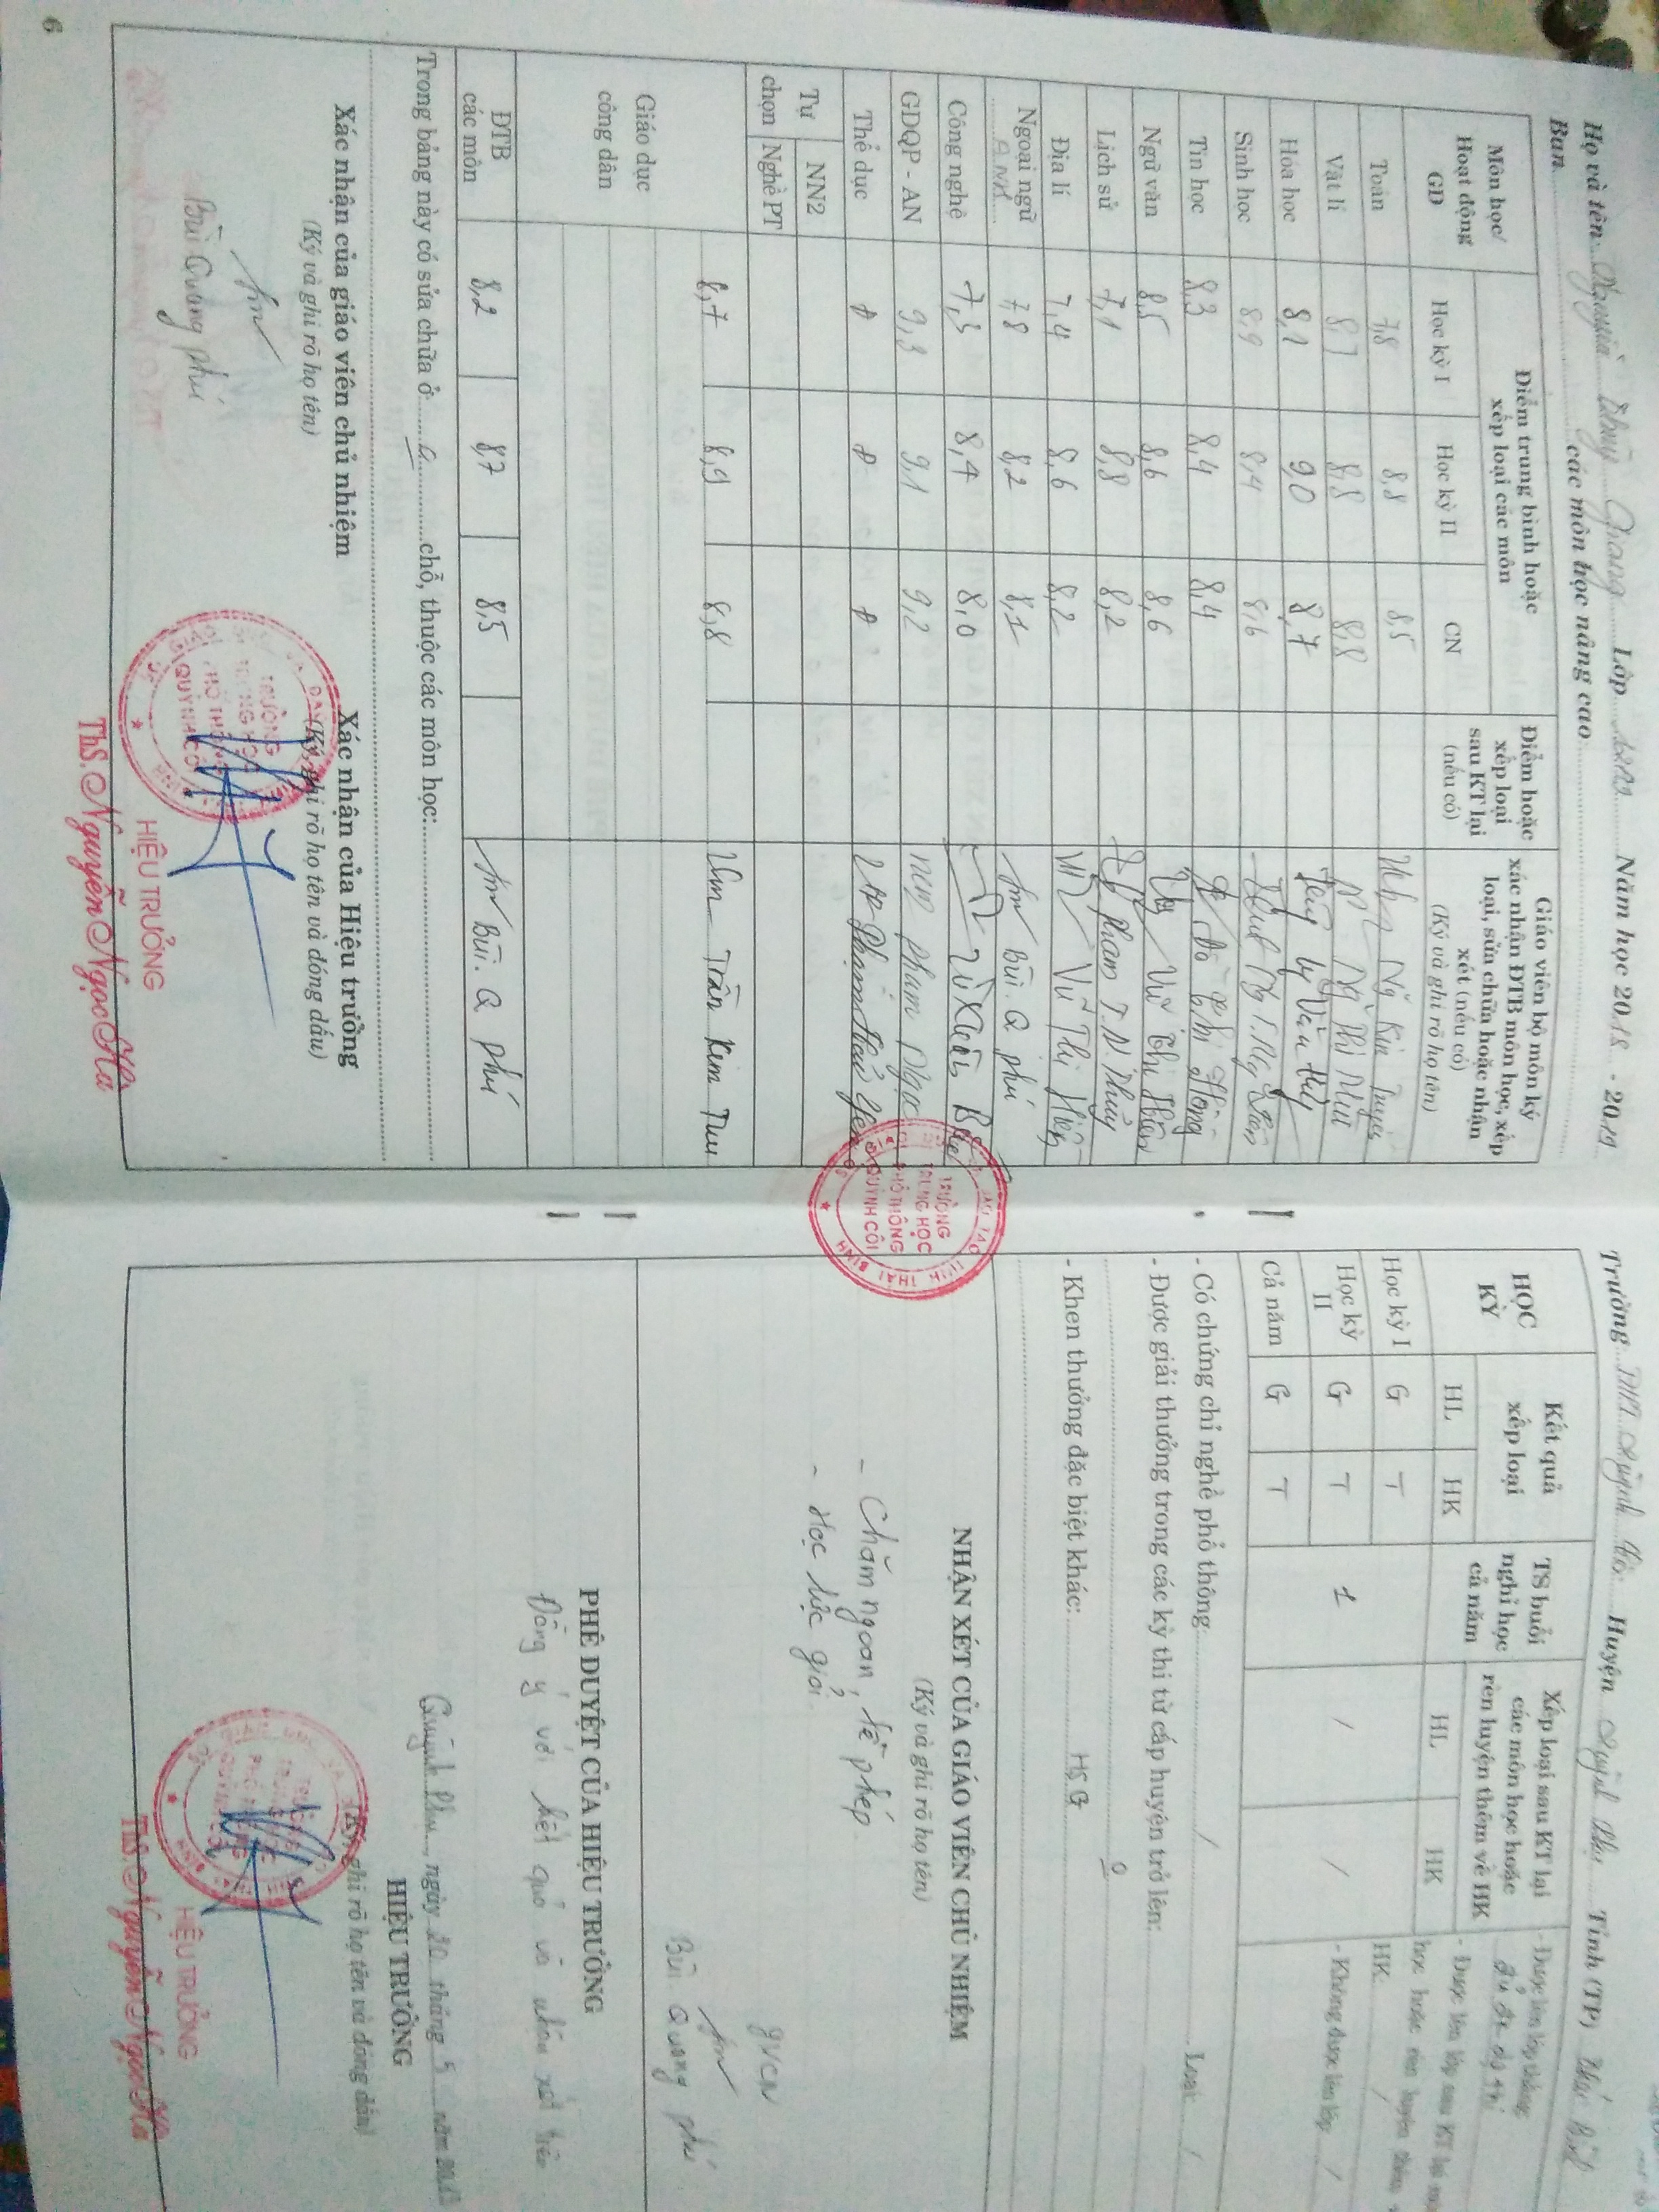 Họ và tên: Nguyễn Thuỳ Giang Lớp 12A9 Năm học 2018 - 2019
Ban các môn học nâng cao
Môn học/ Hoạt động GD
Điểm trung bình hoặc xếp loại các môn
Điểm hoặc xếp loại sau KT lại (nếu có)
Giáo viên bộ môn ký xác nhận ĐTB môn học, xếp loại, sửa chữa hoặc nhận xét (nếu có) (Ký và ghi rõ họ tên)
Học kỳ I Học kỳ II CN
Toán 7,8 8,8 8,5 Ng Kim
Vật lí 8,7 8,8 8,8 Ng Thị
Hóa học 8,1 9,0 8,7 Văn
Sinh học 8,9 8,4 8,6
Tin học 8,3 8,4 8,4 Đỗ Thị Hồng
Ngữ văn 8,5 8,6 8,6 Vũ Thị Hiền
Lịch sử 7,1 8,8 8,2 Phạm T.N.Thủy
Địa lí 7,4 8,6 8,2 Vũ Thị Hiền
Ngoại ngữ ANH 7,8 8,2 8,1 Bùi. Q Phú
Công nghệ 7,3 8,4 8,0
GDQP - AN 9,3 9,1 9,2 Phạm Ngọc
Thể dục Đ Đ Đ Phạm Hải Yến
Tự chọn
NN2
Nghề PT
8,7 8,9 8,8 Trần Kim Thu
Giáo dục công dân
ĐTB các môn 8,2 8,7 8,5 Bùi. Q Phú
Trong bảng này có sửa chữa ở 0 chỗ, thuộc các môn học:
Xác nhận của giáo viên chủ nhiệm
(Ký và ghi rõ họ tên)
Bùi Quang Phú
Xác nhận của Hiệu trưởng
(Ký, ghi rõ họ tên và đóng dấu)
TRƯỜNG
TRUNG HỌC
PHỔ THÔNG
QUỲNH CÔI
HIỆU TRƯỞNG
ThS. Nguyễn Ngọc Hà
6
Trường THPT Quỳnh Côi Huyện Quỳnh Phụ Tỉnh (TP) Thái Bình
HỌC KỲ
Kết quả xếp loại
TS buổi nghỉ học cả năm
Xếp loại sau KT lại các môn học hoặc rèn luyện thêm về HK
HL HK HL HK
- Được lên lớp thẳng:
- Được lên lớp sau KT lại
học hoặc rèn luyện thêm
HK: /
- Không được lên lớp: /
Học kỳ I G T
Học kỳ II G T 1 / /
Cả năm G T
- Có chứng chỉ nghề phổ thông / Loại: /
- Được giải thưởng trong các kỳ thi từ cấp huyện trở lên:
0
- Khen thưởng đặc biệt khác: HSG
TRƯỜNG
TRUNG HỌC
PHỔ THÔNG
QUỲNH CÔI
NHẬN XÉT CỦA GIÁO VIÊN CHỦ NHIỆM
(Ký và ghi rõ họ tên)
- Chăm ngoan, lễ phép
- Học lực giỏi
GVCN
Bùi. Quang Phú
PHÊ DUYỆT CỦA HIỆU TRƯỞNG
Đồng ý với kết quả và nhận xét trên
Quỳnh Phụ, ngày 20 tháng 5 năm 2019
HIỆU TRƯỞNG
(Ký, ghi rõ họ tên và đóng dấu)
TRƯỜNG
TRUNG HỌC
PHỔ THÔNG
QUỲNH CÔI
HIỆU TRƯỞNG
ThS. Nguyễn Ngọc Hà